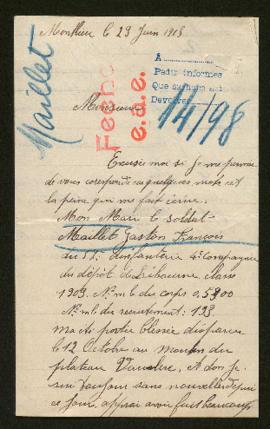 Monthieu le 29 Juin 1915
Maillet
A
Pedir informes
Que
Devolver
14/98
Monsieur
Excusez moi si je me permets
de vous correspondre quelques mots c'est
la peine qui me fait écrire.
Mon Mari le soldat
Maillet Gaston François
du 57e d'infanterie 4e Compagnie
du dépôt de Libourne, classe
1909. No mle du corps 05900
No mle du recrutement: 193
ma été porté blessé disparu
le 12 Octobre au moulin du
plateau Vauclerc, et dont je
suis toujours sans nouvelle depuis
ce jour, après avoir fait beaucoup